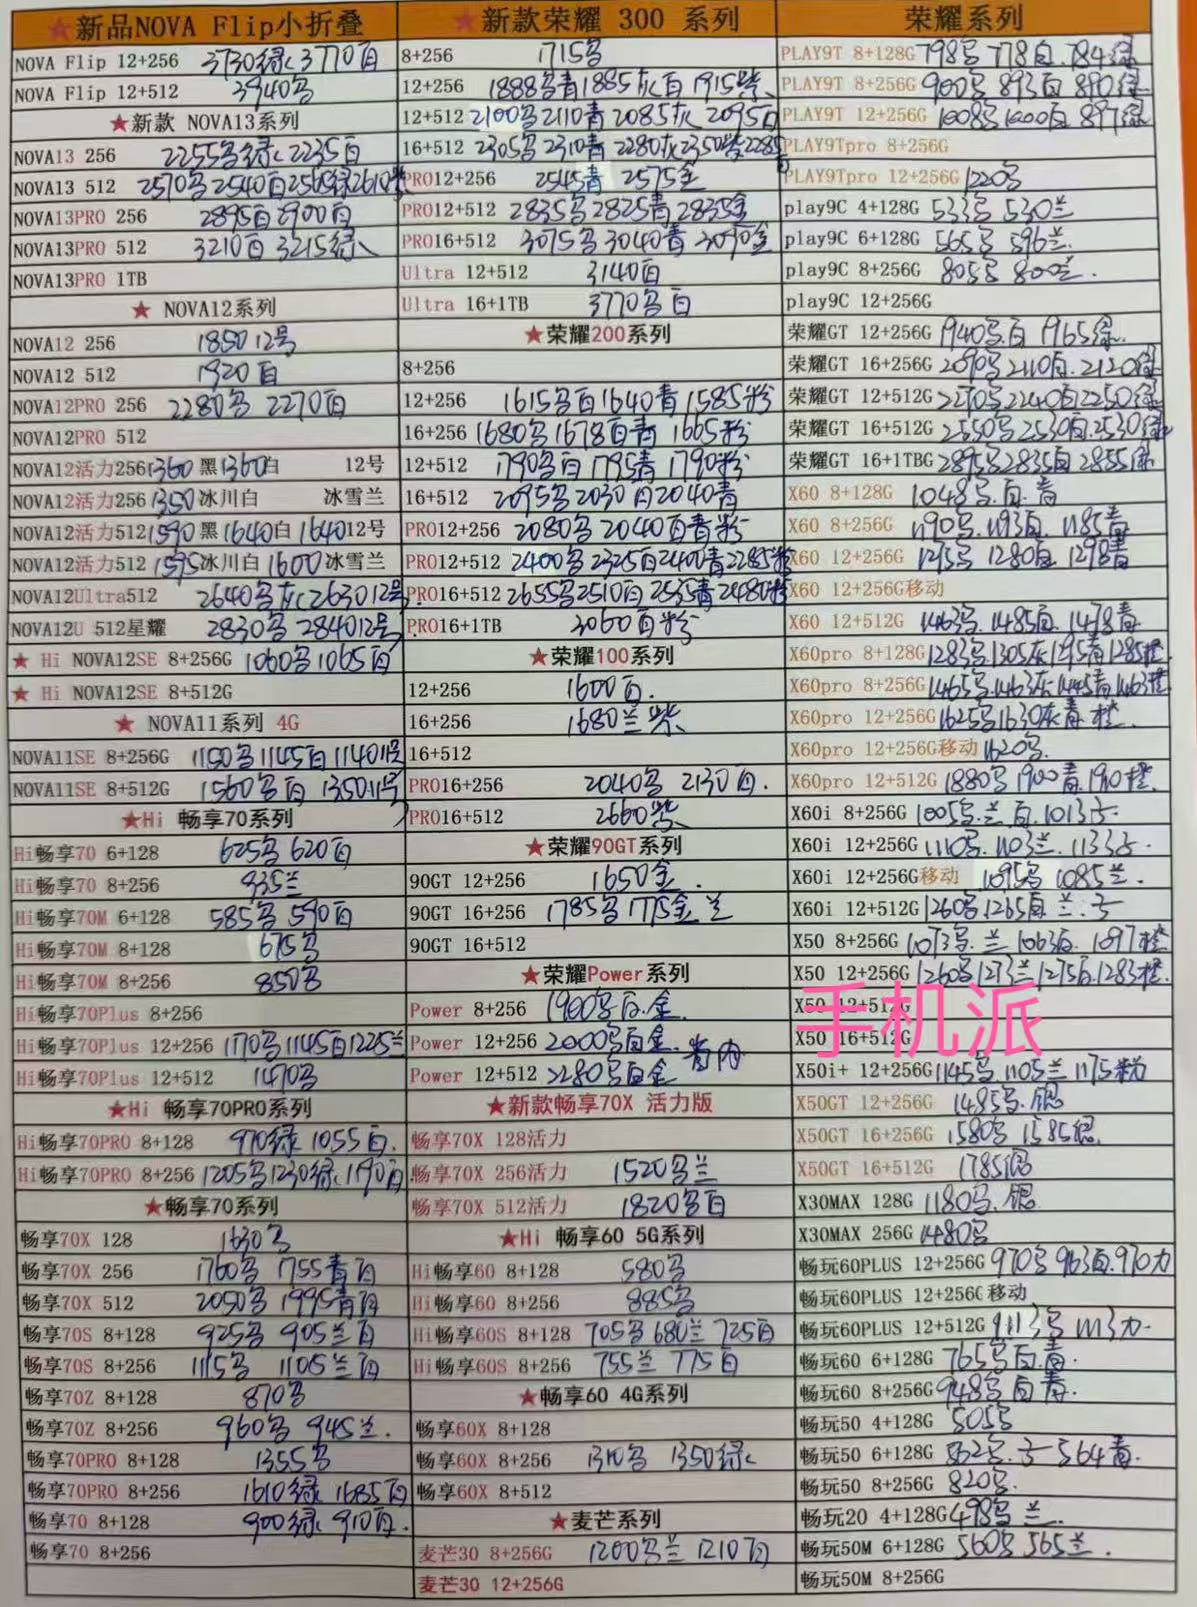 ★新品NOVA Flip小折叠
NOVA Flip 12+256 3730绿 3770白
NOVA Flip 12+512 3940
★新款 NOVA13系列
NOVA13 256 2255 绿 2235白
NOVA13 512 2570 2540白2565绿2610
NOVA13PRO 256 2895白 2900白
NOVA13PRO 512 3210白 3215绿
NOVA13PRO 1TB
★ NOVA12系列
NOVA12 256 1850 12号
NOVA12 512 1920 白
NOVA12PRO 256 2280 2270白
NOVA12PRO 512
NOVA12活力256 1360 黑1360白 12号
NOVA12活力256 1350 冰川白 冰雪兰
NOVA12活力512 1590 黑1640白 1640 12号
NOVA12活力512 1595 冰川白 1600 冰雪兰
NOVA12Ultra512 2640 灰 2630 12号
NOVA12U 512星耀 2830 2840 12号
★ Hi NOVA12SE 8+256G 1060 1065白
★ Hi NOVA12SE 8+512G
★ NOVA11系列 4G
NOVA11SE 8+256G 1150 1145白 1140 11号
NOVA11SE 8+512G 1560 白 1350 11号
★Hi 畅享70系列
Hi畅享70 6+128 625 620白
Hi畅享70 8+256 835兰
Hi畅享70M 6+128 585 590白
Hi畅享70M 8+128 675
Hi畅享70M 8+256 850
Hi畅享70Plus 8+256
Hi畅享70Plus 12+256 1170 1145白1225兰
Hi畅享70Plus 12+512 1470
★Hi 畅享70PRO系列
Hi畅享70PRO 8+128 970绿 1055白
Hi畅享70PRO 8+256 1205 1230绿 1190白
★畅享70系列
畅享70X 128 1630
畅享70X 256 1760 1755青白
畅享70X 512 2050 1995青白
畅享70S 8+128 925 905兰白
畅享70S 8+256 1115 1105兰白
畅享70Z 8+128 870
畅享70Z 8+256 960 945兰
畅享70PRO 8+128 1355
畅享70PRO 8+256 1610绿 1685白
畅享70 8+128 900绿 910白
畅享70 8+256
★新款荣耀 300 系列
8+256 1715
12+256 1888 青1885灰白1915紫
12+512 2100 2110青2085灰2095白
16+512 2305 2310青 2280灰2350紫2285
PRO12+256 2545青 2575金
PRO12+512 2835 2825青2835金
PRO16+512 3075 3040青 3090金
Ultra 12+512 3140白
Ultra 16+1TB 3770 白
★荣耀200系列
8+256
12+256 1615 白1640青1585粉
16+256 1680 1678白青 1665粉
12+512 1790 白1795青1790粉
16+512 2095 2030白2040青
PRO12+256 2080 2040白青粉
PRO12+512 2400 2325白2400青2285粉
PRO16+512 2655 2510白 2535青2480粉
PRO16+1TB 3060白粉
★荣耀100系列
12+256 1600白
16+256 1680兰紫
16+512
PRO16+256 2040 2130白
PRO16+512 2660紫
★荣耀90GT系列
90GT 12+256 1650金
90GT 16+256 1785 1775金兰
90GT 16+512
★荣耀Power系列
Power 8+256 1900 白金
Power 12+256 2000 白金
Power 12+512 2280 白金
★新款畅享70X 活力版
畅享70X 128活力
畅享70X 256活力 1520 兰
畅享70X 512活力 1820 白
★Hi 畅享60 5G系列
Hi畅享60 8+128 580
Hi畅享60 8+256 885
Hi畅享60S 8+128 705 680兰 725白
Hi畅享60S 8+256 755兰 775白
★畅享60 4G系列
畅享60X 8+128
畅享60X 8+256 1310 1350绿
畅享60X 8+512
★麦芒系列
麦芒30 8+256G 1200 兰 1210白
麦芒30 12+256G
荣耀系列
PLAY9T 8+128G 798 778白 784绿
PLAY9T 8+256G 900 893白 890绿
PLAY9T 12+256G 1008 1000白 897绿
PLAY9Tpro 8+256G
PLAY9Tpro 12+256G 1220
play9C 4+128G 533 530兰
play9C 6+128G 565 596兰
play9C 8+256G 805 800兰
play9C 12+256G
荣耀GT 12+256G 1940 白 1965绿
荣耀GT 16+256G 2090 2110白 2120绿
荣耀GT 12+512G 2270 2240白2250绿
荣耀GT 16+512G 2550 2530白 2530绿
荣耀GT 16+1TBG 2895 2835白 2855绿
X60 8+128G 1048 白 青
X60 8+256G 1190 1193白 1185青
X60 12+256G 1295 1280白 1298青
X60 12+256G移动
X60 12+512G 1463 1485白 1478青
X60pro 8+128G 1283 1305灰1295青1285橙
X60pro 8+256G 1465 1463灰1445青1463橙
X60pro 12+256G 1625 1630灰青 橙
X60pro 12+256G移动 1620
X60pro 12+512G 1880 1900青 1910橙
X60i 8+256G 1005 兰白 1013
X60i 12+256G 1110 1103兰 1133
X60i 12+256G移动 1095 1085兰
X60i 12+512G 1260 1265白 兰
X50 8+256G 1073 兰 1063白 1097橙
X50 12+256G 1260 1273兰1275白1283橙
X50 12+512G
手机派
X50 16+512G
X50i+ 12+256G 1145 1105兰 1175粉
X50GT 12+256G 1495 银
X50GT 16+256G 1580 1585银
X50GT 16+512G 1785银
X30MAX 128G 1180 银
X30MAX 256G 1480
畅玩60PLUS 12+256G 970 963白 970
畅玩60PLUS 12+256G移动
畅玩60PLUS 12+512G 1113 1113
畅玩60 6+128G 765 白青
畅玩60 8+256G 948 白青
畅玩50 4+128G 505
畅玩50 6+128G 562 564青
畅玩50 8+256G 820
畅玩20 4+128G 498 兰
畅玩50M 6+128G 560 565兰
畅玩50M 8+256G